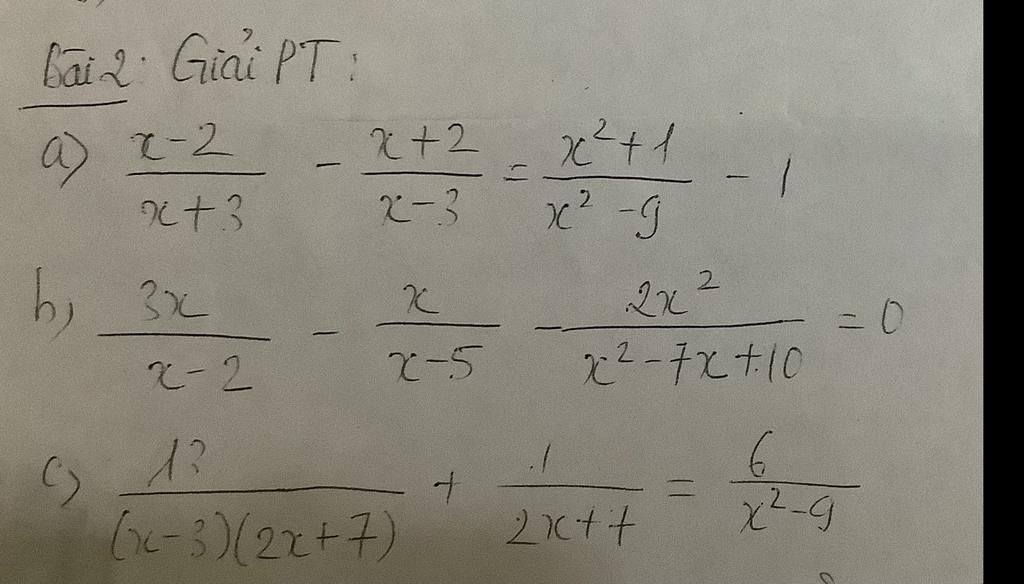 Bài 2: Giải PT:
a) (x-2)/(x+3) - (x+2)/(x-3) = (x²+1)/(x²-9) - 1
b) 3x/(x-2) - x/(x-5) - 2x²/(x²-7x+10) = 0
c) 13/((x-3)(2x+7)) + 1/(2x+7) = 6/(x²-9)